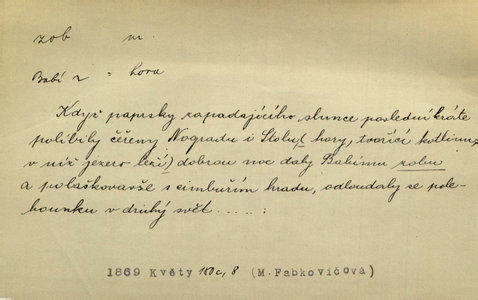 zob m.
Babí z = hora
Když paprsky zapadajícího slunce poslední kráte
políbily čeřeny Nogradu i Stolu (hory, tvořící kotlinu,
v níž jezero leží) dobrou noc daly Babímu zobu
a polaškovavše s cimbuřím hradu, odloudaly se pole-
hounku v druhý svět . . . . . :
1869 Květy 180c, 8 (M.Fabkovičová)